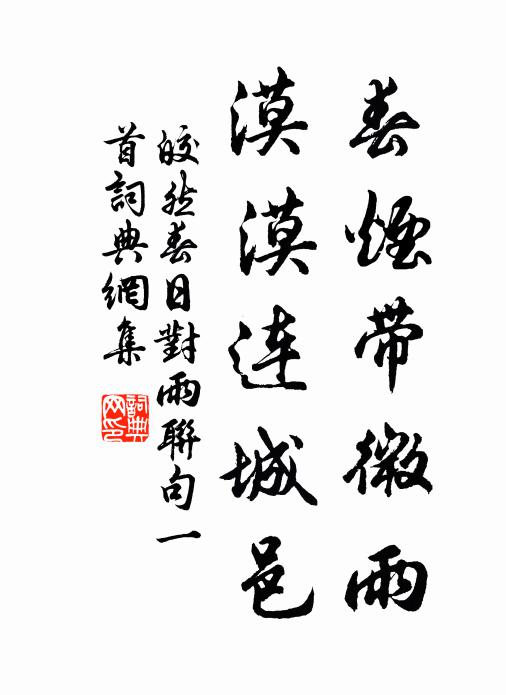 春煙带微雨
漠漠連城邑
皎然春日對雨聯句一
首詞典網集
詞典
网印